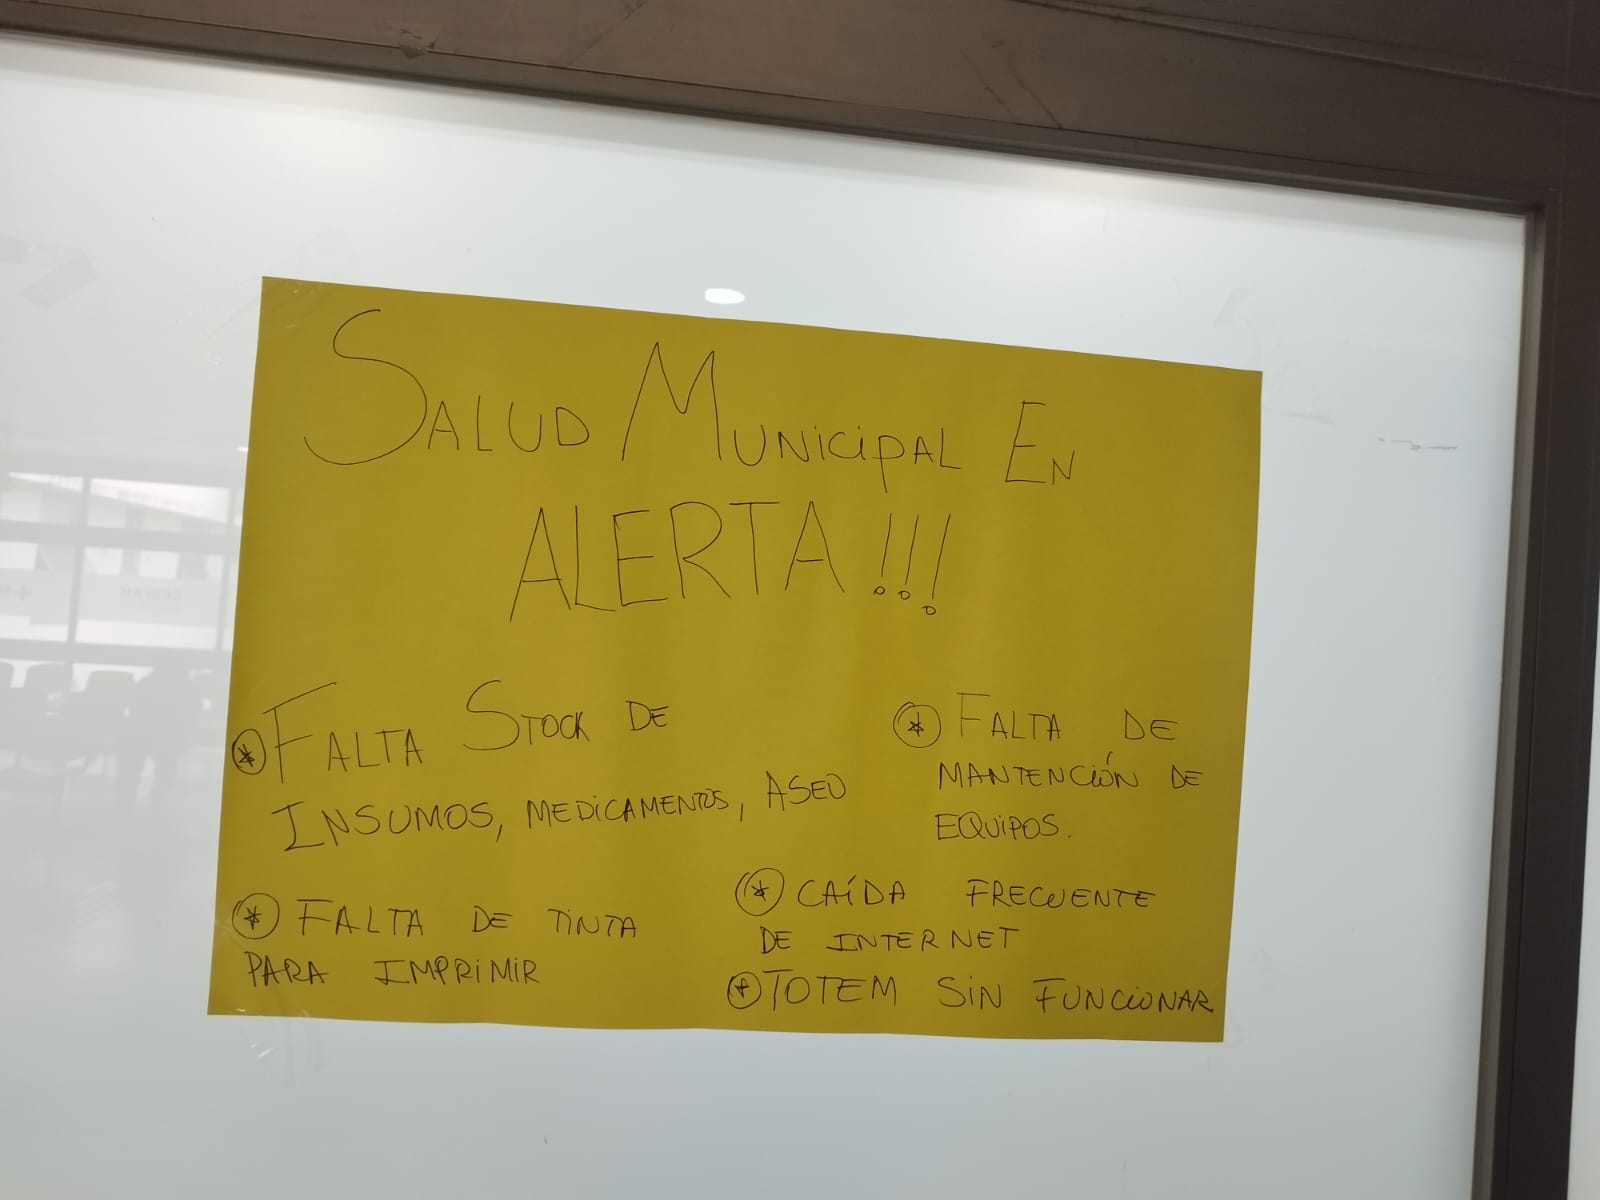 SALUD MUNICIPAL EN
ALERTA!!!
* FALTA STOCK DE
INSUMOS, MEDICAMENTOS, ASEO
* FALTA DE TINTA
PARA IMPRIMIR
* FALTA DE
MANTENCIÓN DE
EQUIPOS.
* CAÍDA FRECUENTE
DE INTERNET
* TOTEM SIN FUNCIONAR
CESFAM